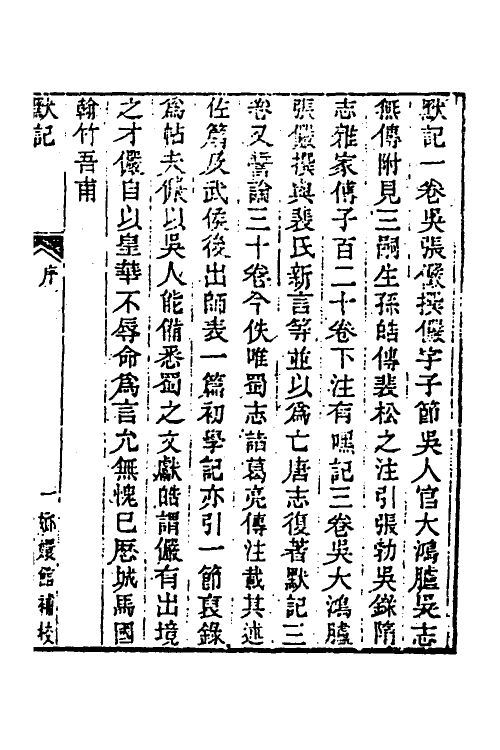 默記一卷吳張儼撰儼字子節吳人官大鴻臚吳志
無傳附見三嗣主孫皓傳裴松之注引張勃吳錄隋
志雜家傅子百二十卷下注有嘿記三卷吳大鴻臚
張儼撰與裴氏新言等並以為亡唐志復著默記三
卷又誓論三十卷今佚唯蜀志諸葛亮傳注載其述
佐篇及武侯後出師表一篇初學記亦引一節裒錄
為帖夫儼以吳人能備悉蜀之文獻皓謂儼有出境
之才儼自以皇華不辱命為言允無愧已歷城馬國
翰竹吾甫
默記
序
一
嫏嬛館補校